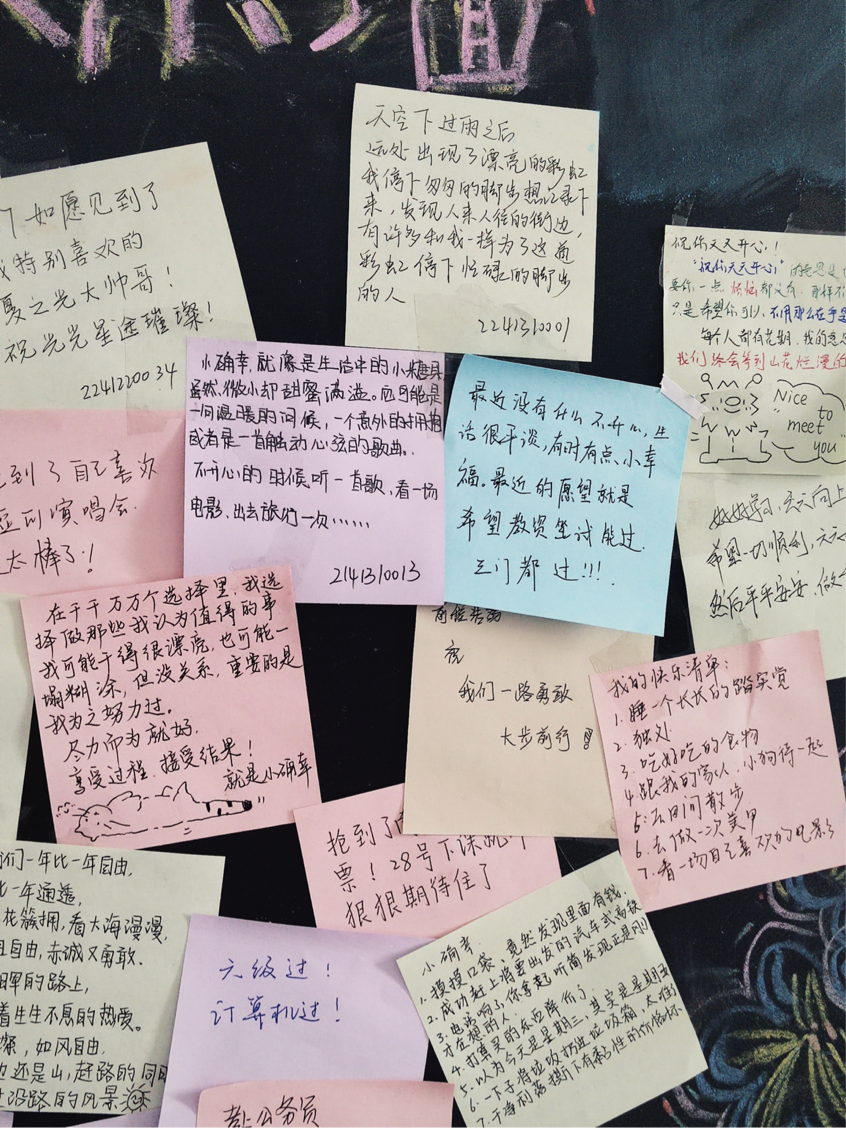 天空下过雨之后
远处出现了漂亮的彩虹
我停下匆匆的脚步想记录下
来，发现人来人往的街边，
有许多和我一样为了这道
彩虹停下忙碌的脚步
的人
2241310001
如愿见到了
特别喜欢的
夏之光大帅哥！
祝光光星途璀璨！
2241220034
祝你天天开心！
"祝你天天开心"的意思是
要你一点烦恼都没有，那样不
只是希望你可以，不用那么在乎
每个人都有花期，我的意思
我们终会等到山花烂漫的
Nice
to
meet
you
小确幸，就像是生活中的小糖果
虽然微小却甜蜜满溢。它可能是
一间温暖的问候，一个意外的拥抱
或者是一首触动心弦的歌曲。
不开心的时候听一首歌，看一场
电影，出去旅行一次……
2141310013
最近没有什么不开心，生
活很平淡，有时有点小幸
福。最近的愿望就是
希望教资笔试能过
三门都过!!!
到了自己喜欢
演唱会
太棒了！
好好学习，天天向上
希望一切顺利，天天
然后平平安安，做
在千千万万个选择里，我选
择做那些我认为值得的事
我可能干得很漂亮，也可能一
塌糊涂，但没关系，重要的是
我为之努力过。
尽力而为就好，
享受过程，接受结果！
就是小确幸
我们一路勇敢
大步前行
我的快乐清单：
1.睡一个长长的踏实觉
2.独处
3.吃好吃的食物
4.跟我的家人、小狗待一起
5.去田间散步
6.去做一次美甲
7.看一场自己喜欢的电影
抢到了
票！28号下课就
狠狠期待住了
们一年比一年自由，
一年通透，
花簇拥，看大海漫漫，
自由，赤诚又勇敢.
的路上，
着生生不息的热爱。
，如风自由.
还是山，赶路的同时
沿路的风景
六级过！
计算机过！
小确幸
1.摸摸口袋，竟然发现里面有钱.
2.成功赶上将要出发的汽车或高铁
3.电话响了，你拿起听筒发现正是刚刚
才在想的人.
4.打算买的东西降价了.
5.以为今天是星期三，其实是星期五
6.一下子将垃圾扔进垃圾箱，太准
7.干净利落撕下有黏性的价格标
公务员